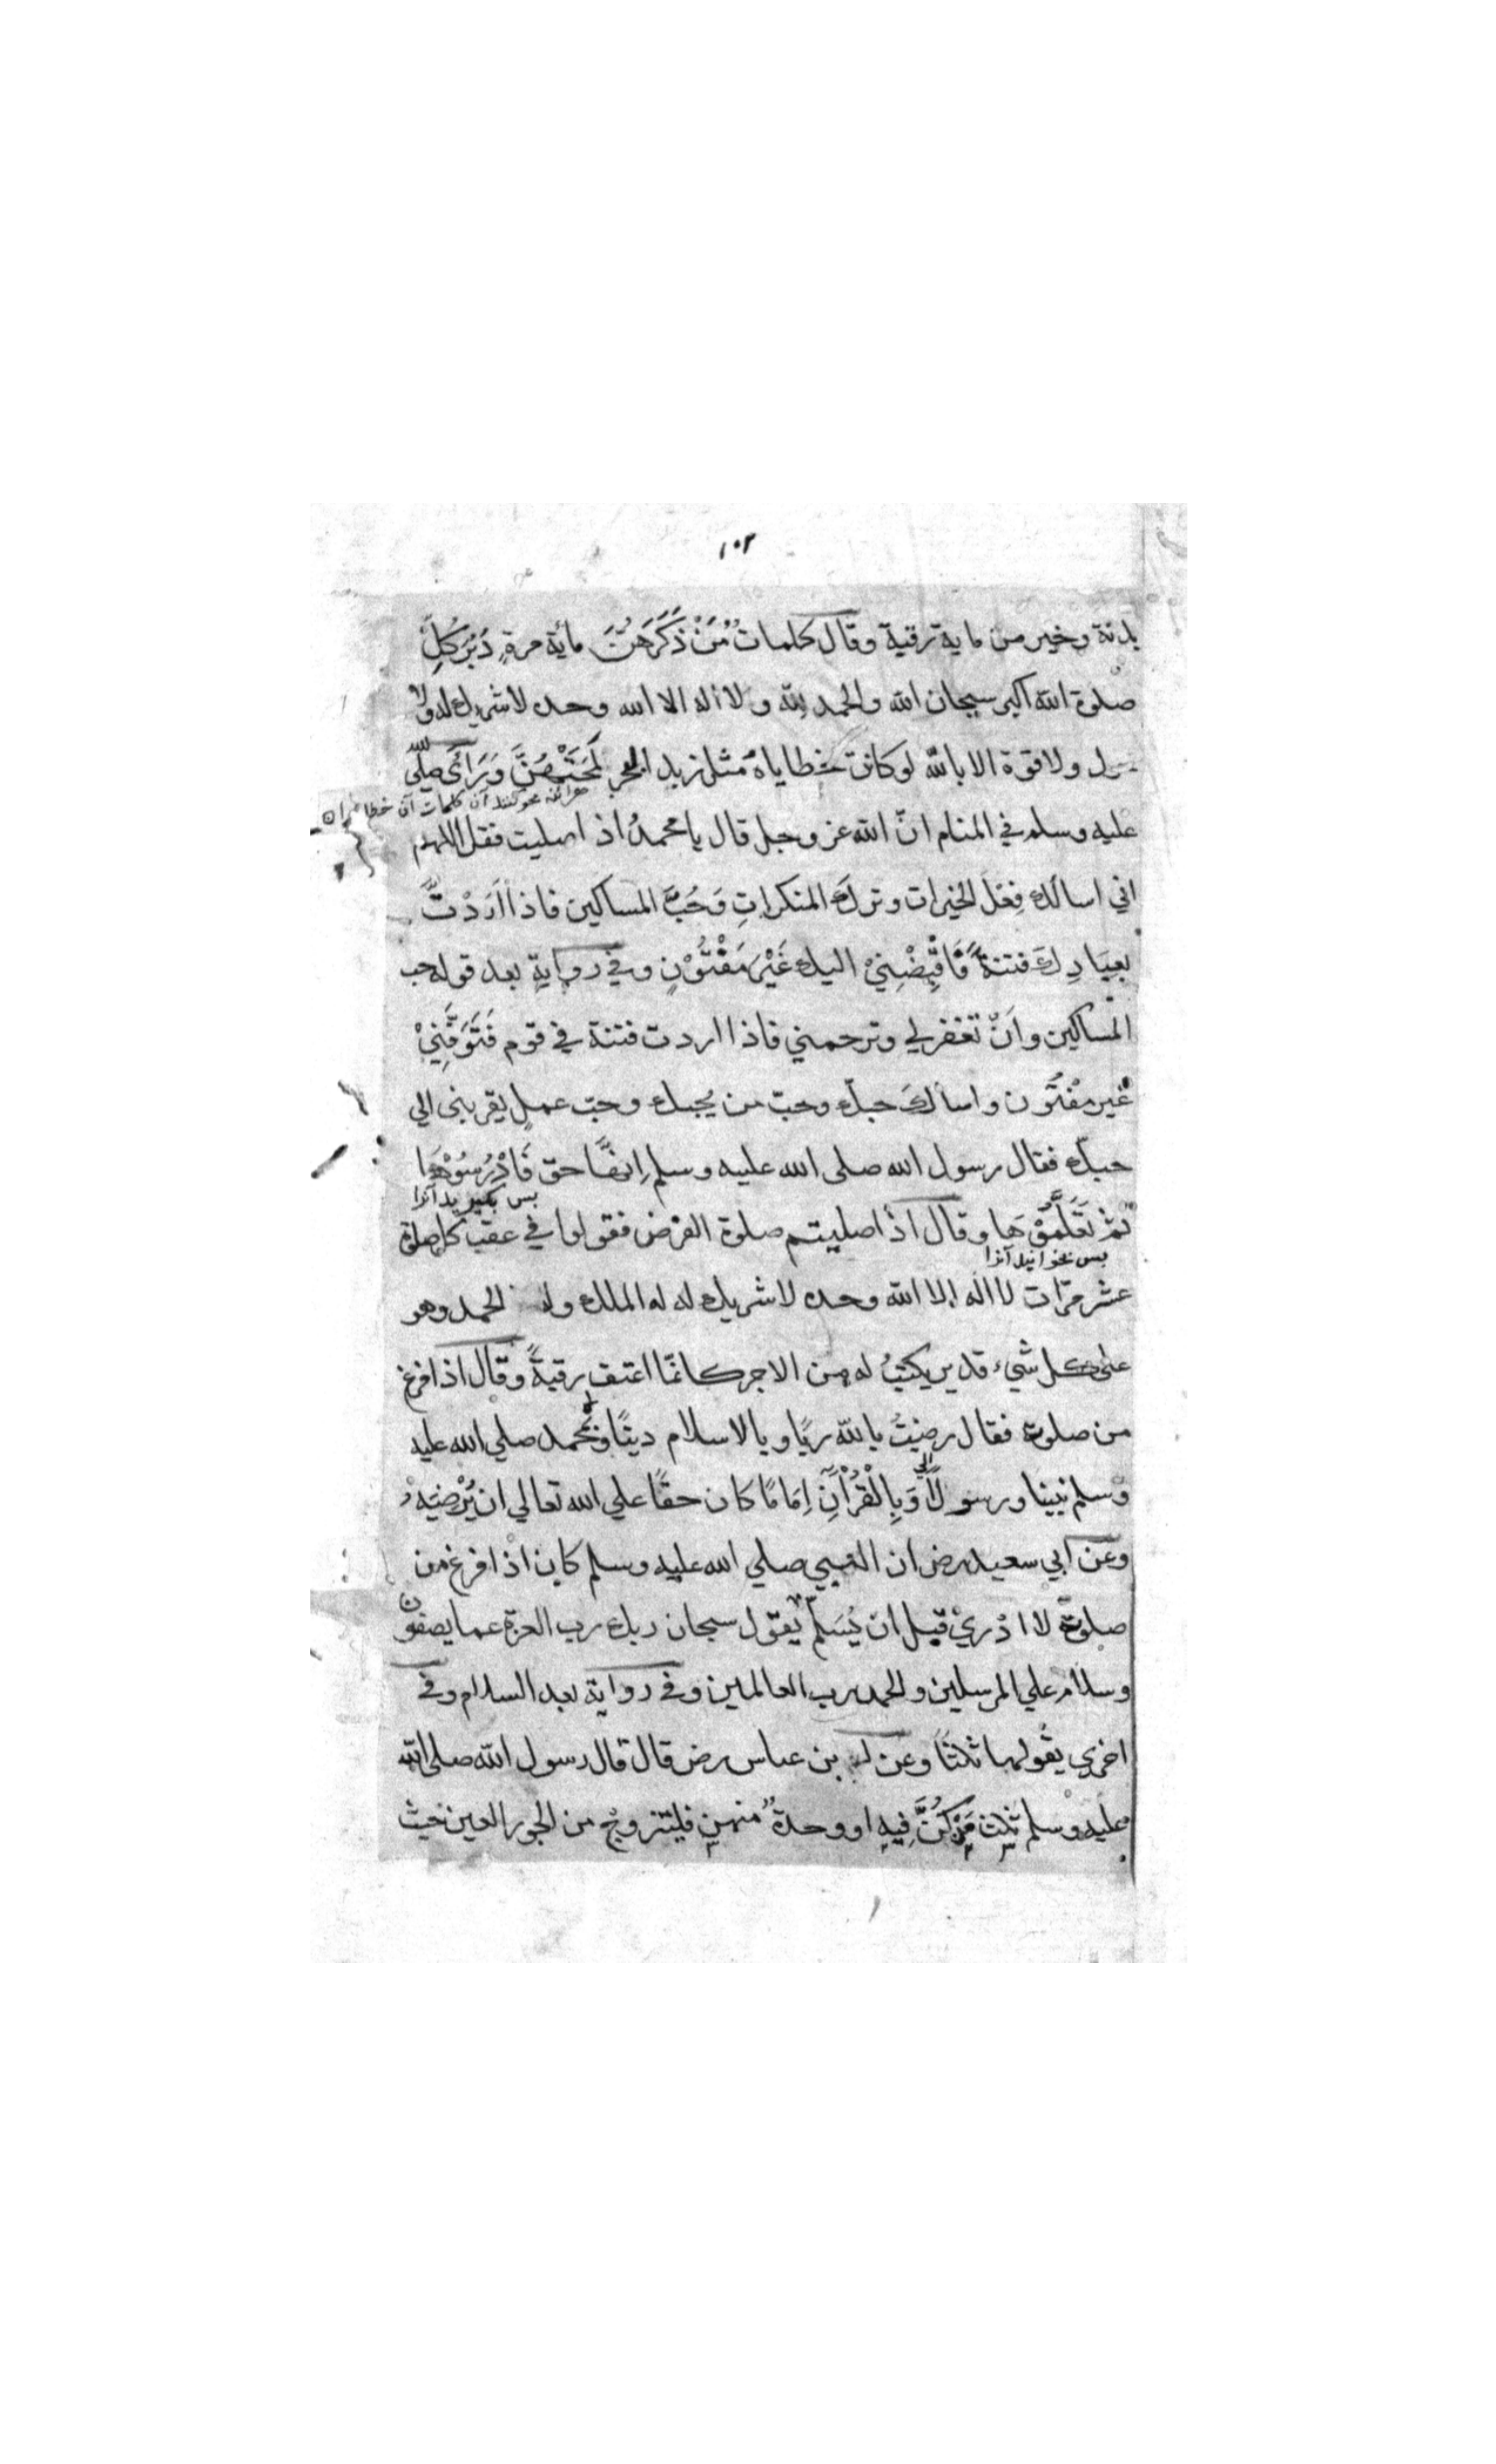 ١٠٢
بدنة وخير من ماية رقبة وقال كلمات مَنْ ذَكَرَهُنَّ مائة مرةٍ دُبُرَ كُلِّ
صلوة الله اكبر سبحان الله والحمد لله ولا اله الا الله وحده لا شريك له ولا
حول ولا قوة الا بالله لو كانت خطاياهُ مثل زبد البحر لَمَحَتْهُنَّ وَرَأَى صلى الله
هرائنه محو كنند آن كلمات آن خطاها را
عليه وسلم في المنام انّ الله عز وجل قال يا محمدُ اذا صليت فقل اللهم
اني اسالك فِعْلَ الخيرات وتركَ المنكراتِ وَحُبَّ المساكين فاذا اَرَدْتَّ
بعِبَادِكَ فتنةً فَاقْبِضْنِيْ اليك غَيْرَ مَفْتُوْنٍ وفي روايةٍ بعد قوله حب
المساكين واَنْ تغفر لي وترحمني فاذا اردت فتنة في قوم فَتَوَفَّنِيْ
غير مفتُون واسالكَ حبّك وحبّ من يحبك وحبّ عملٍ يقربنى الي
حبّك فقال رسول الله صلى الله عليه وسلم اِنهَّا حق فَادْرُسُوْهَا
پس بگيريد آنرا
ثم تَعَلَّمُوْهَا وقال اذا صليتم صلوة الفرض فقولوا في عقب كل صلوة
پس بخوانيد آنرا
عشر مرّات لا اله الا الله وحده لا شريك له له الملك وله الحمد وهو
على كل شيء قدير يكتبُ له من الاجر كانمّا اعتق رقبةً وقال اذا فرغ
من صلوته فقال رضيتُ بالله ربًا وبالاسلام دينًا وبمحمد صلي الله عليه
وسلم نبينا ورسولًا وَبِالْقُرْآنِ اِمَامًا كان حقًا علي الله تعالي ان يُرْضِيَهُ
وعن ابي سعيد رض ان النبي صلي الله عليه وسلم كان اذا فرغ من
صلوته لا ادْرِيْ قبل ان يُسَلِّمَ يقول سبحان ربك رب العزة عما يصفون
وسلام علي المرسلين والحمد رب العالمين وفي رواية بعد السلام وفي
اخري يقولها ثلثًا وعن بن عباس رض قال قال رسول الله صلى الله
عليه وسلم ثلث مَنْ كُنَّ فِيهِ او وحدة منهن فليتزوج من الحور العين حيث